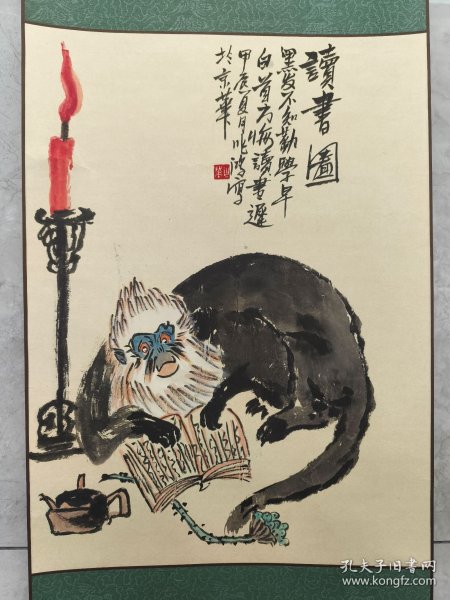 讀書圖
黑发不知勤學早
白首方悔讀書遲
甲辰夏月兆寫
於京華
孔夫子旧书网
www.kongfz.com